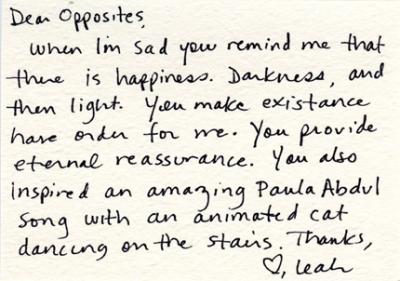 Dear Opposites,
When I'm sad you remind me that
there is happiness. Darkness, and
then light. You make existance
have order for me. You provide
eternal reassurance. You also
inspired an amazing Paula Abdul
song with an animated cat
dancing on the stairs. Thanks,
♡, Leah